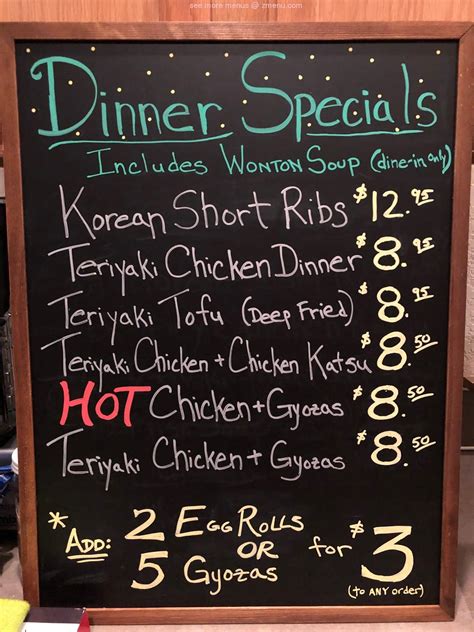 see more menus @ zmenu.com
Dinner Specials
Includes Wonton Soup (dine-in only)
Korean Short Ribs $12.95
Teriyaki Chicken Dinner $8.95
Teriyaki Tofu (Deep Fried) $8.95
Teriyaki Chicken + Chicken Katsu $8.50
HOT Chicken + Gyozas $8.50
Teriyaki Chicken + Gyozas $8.50
* Add: 2 Egg Rolls OR 5 Gyozas for $3
(to ANY order)